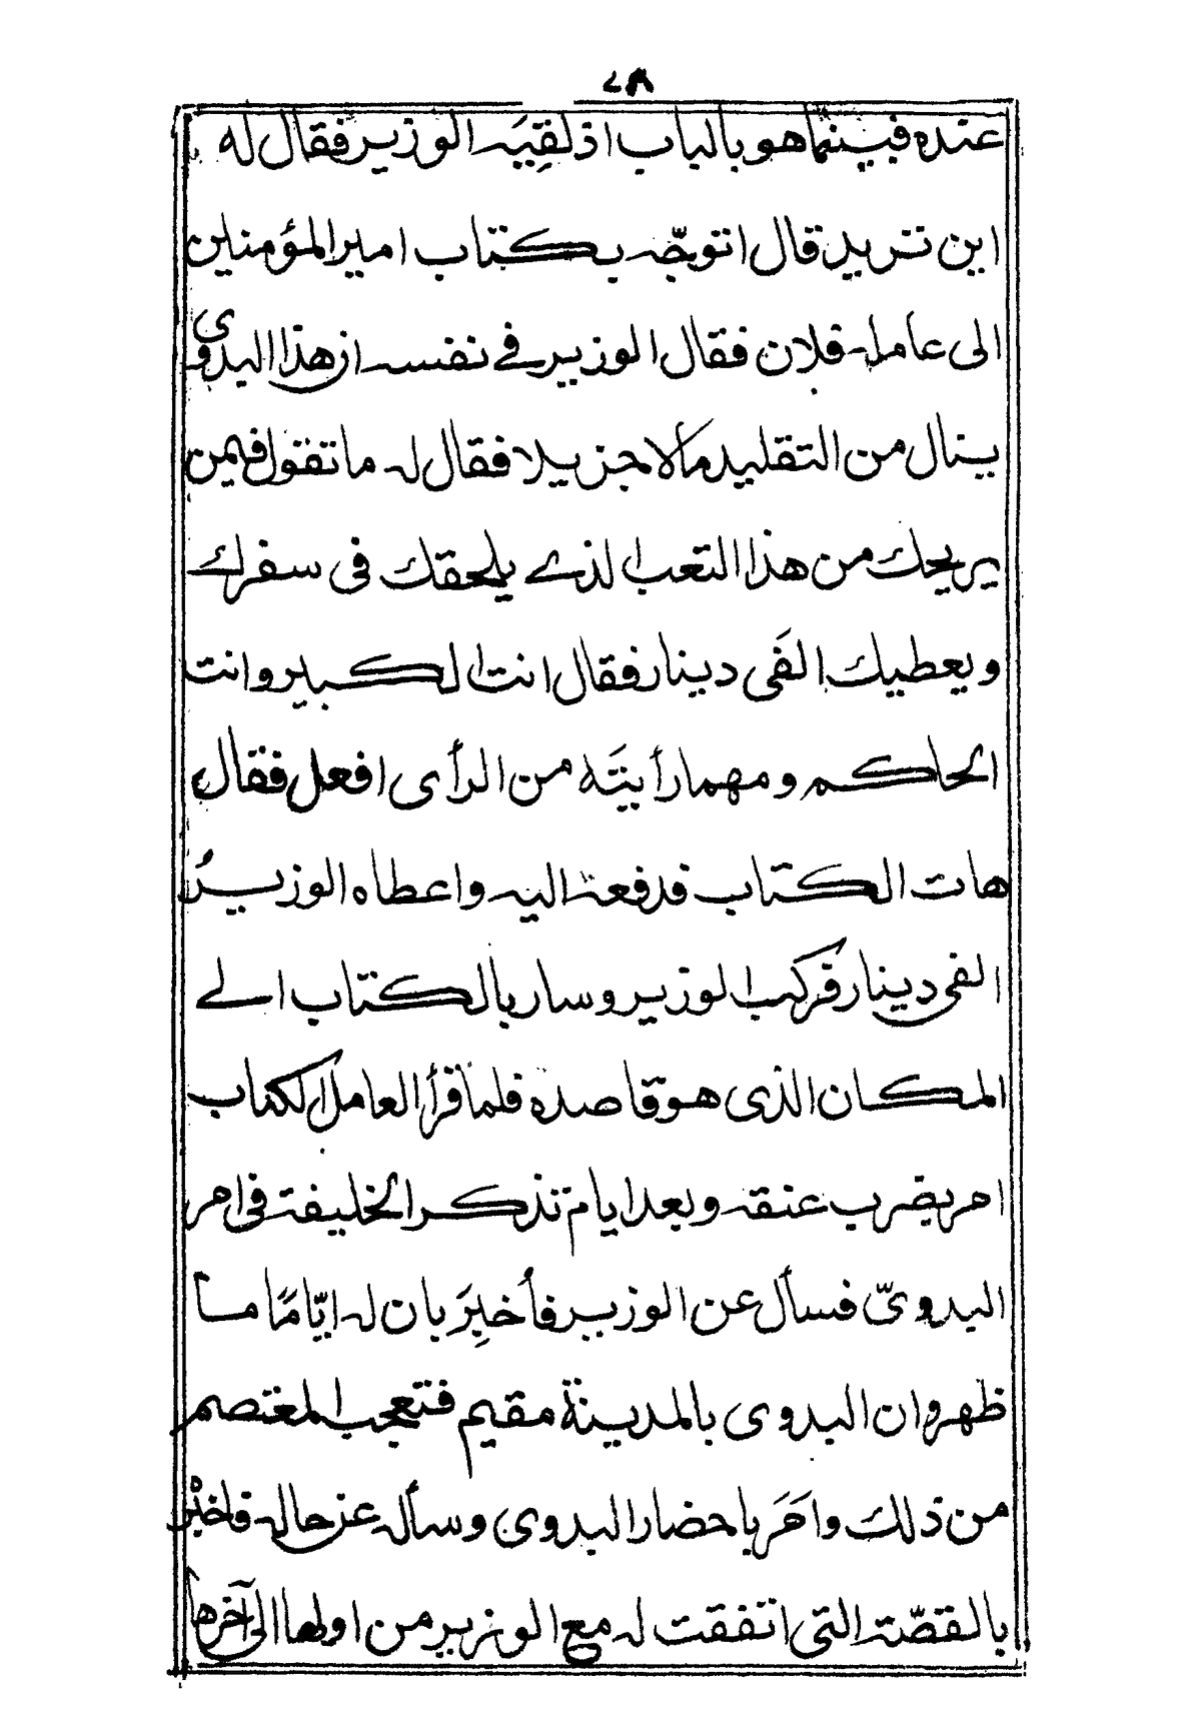 ٢٨
عنده فبينما هو بالباب اذ لقِيَه الوزير فقال له
اين تريد قال اتوجّه بكتاب امير المؤمنين
الى عامله فلان فقال الوزير فے نفسه ان هذا البدوى
ينال من التقليد مالا جزيلا فقال له ما تقول فيمن
يريحك من هذا التعب الذے يلحقك فى سفرك
ويعطيك الفَى دينار فقال انت الكبير وانت
الحاكم ومهما رأيتَه من الرأى افعل فقال
هات الكتاب فدفعه اليه واعطاه الوزيرُ
الفى دينار فركب الوزير وسار بالكتاب الے
المكان الذى هو قاصده فلما قرأ العامل الكتاب
امر بضرب عنقه وبعد ايام تذكر الخليفة فى امر
البدوىّ فسأل عن الوزير فأُخبِرَ بان له ايّامًا ما
ظهر وان البدوى بالمدينة مقيم فتعجب المعتصم
من ذلك وامَرَ باحضار البدوى وسأله عن حاله فاخبرْ
بالقصّة التى اتفقت له مع الوزير من اولها الى آخرها